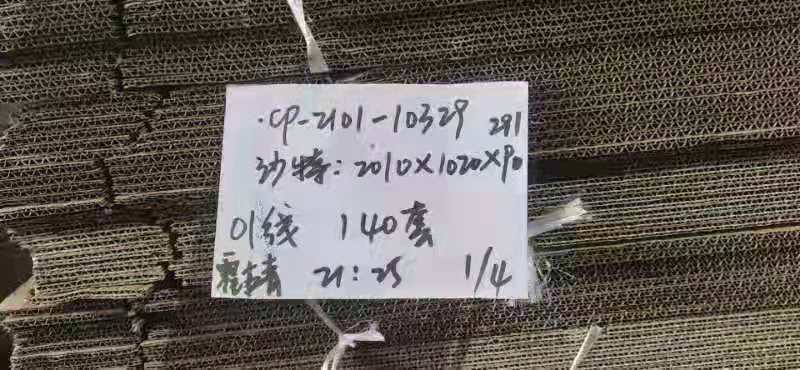 CP-2101-10329 291
沙特:2010×1020×90
01线 140套
21:25 1/4